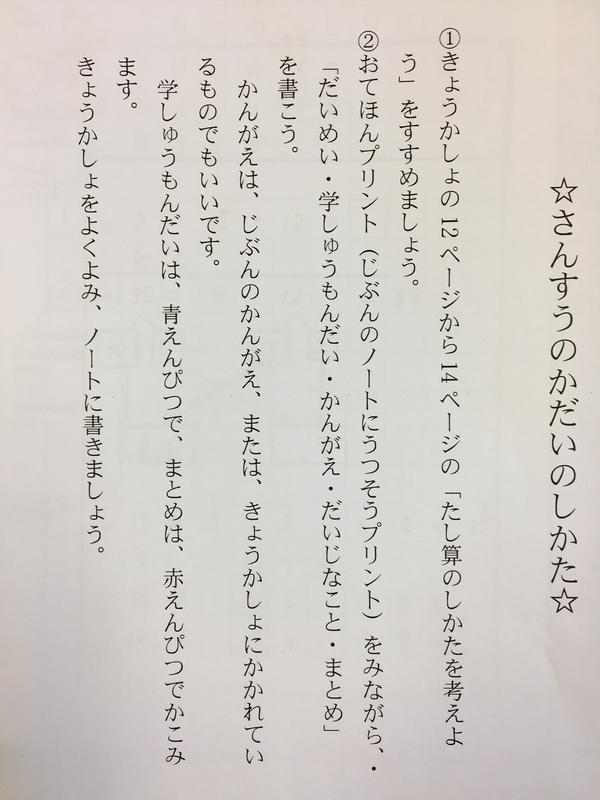 ☆さんすうのかだいのしかた☆
①きょうかしょの12ページから14ページの「たし算のしかたを考えよ
う」をすすめましょう。
②おてほんプリント（じぶんのノートにうつそうプリント）をみながら、・
「だいめい・学しゅうもんだい・かんがえ・だいじなこと・まとめ」
を書こう。
かんがえは、じぶんのかんがえ、または、きょうかしょにかかれてい
るものでもいいです。
学しゅうもんだいは、青えんぴつで、まとめは、赤えんぴつでかこみ
ます。
きょうかしょをよくよみ、ノートに書きましょう。